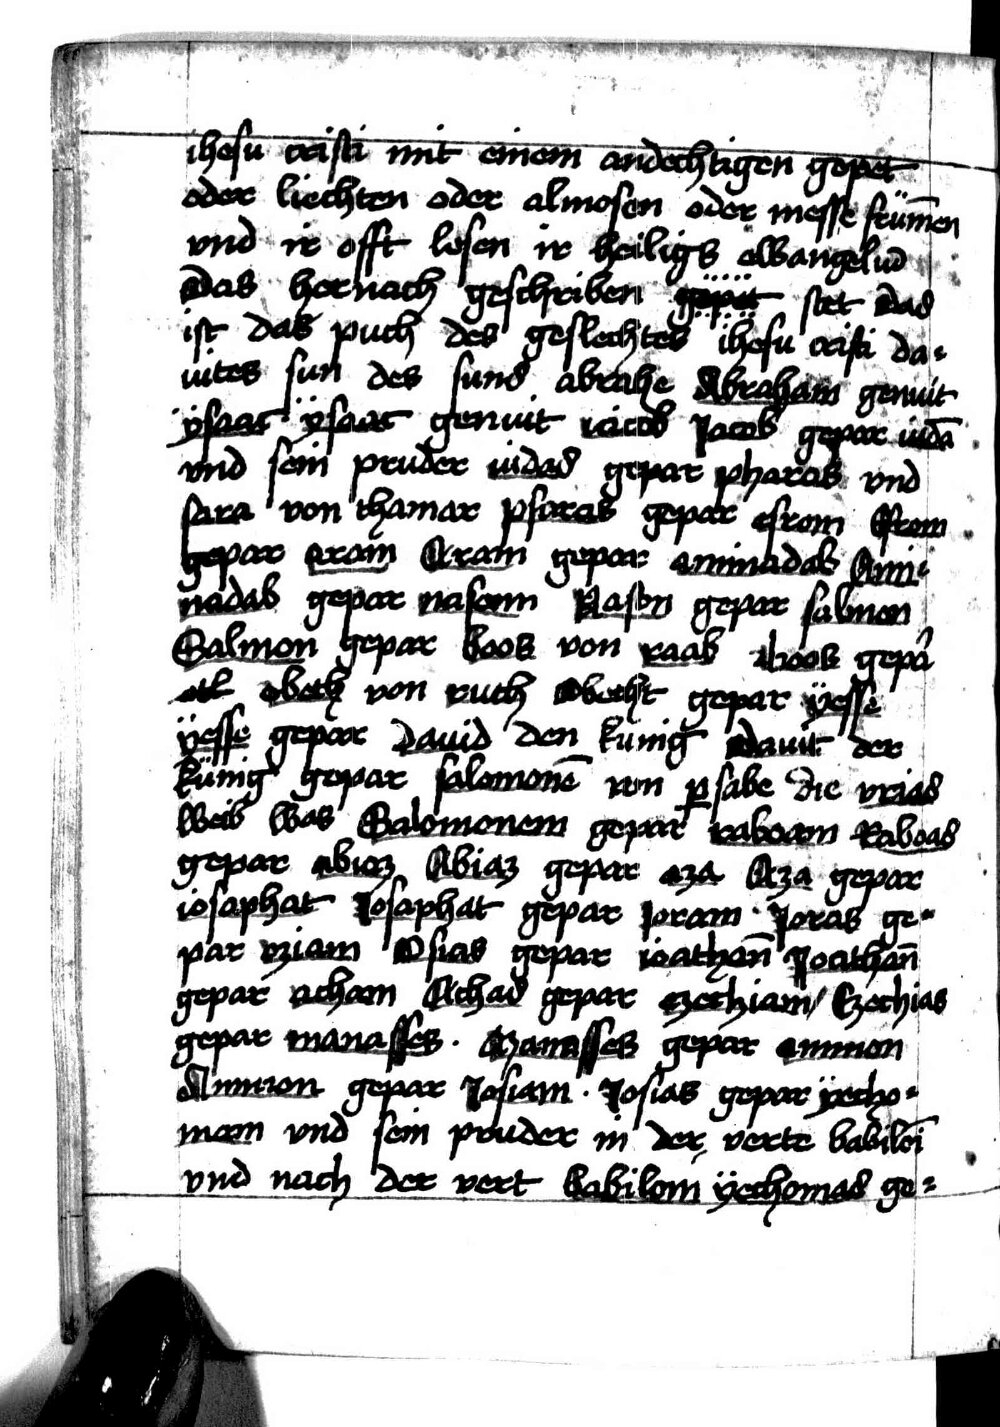 ihesu cristi mit einem andechtigen gepet
oder liechten oder almosen oder messe frümen
vnd ir offt lesen ir heiligs ewangelud
Das hernach geschriben gepet stet Das
ist das puch des geslechtes ihesu cristi da-
uites sun des suns abrahe Abraham genuit
ÿsaac ÿsaac genuit iacob Jacob gepar iudā
vnd sein pruder iudas gepar pharas vnd
sara von thamar pfaras gepar esrom Esrom
gepar aram Aram gepar aminadab Ami-
nadab gepar nasonn Nason gepar salmon
Salmon gepar boos von raab boos gepar
obeth von ruch Obecht gepar ÿesse
ÿesse gepar dauid den kunig dauit der
künig gepar salomonē von persabe die vrias
weib was Salomonem gepar raboam Raboas
gepar abiaz Abiaz gepar aza Aza gepar
iosaphat Josaphat gepar joram Joras ge-
par oziam Osias gepar ioathan̄ Joathan̄
gepar acham Achas gepar ezechiam / Ezechias
gepar manasses . Manasses gepar ammon
Ammon gepar Josiam . Josias gepar ÿecho-
mam vnd sein pruder in der verte babiloī
vnd nach der vert babiloni ÿechomas ge-